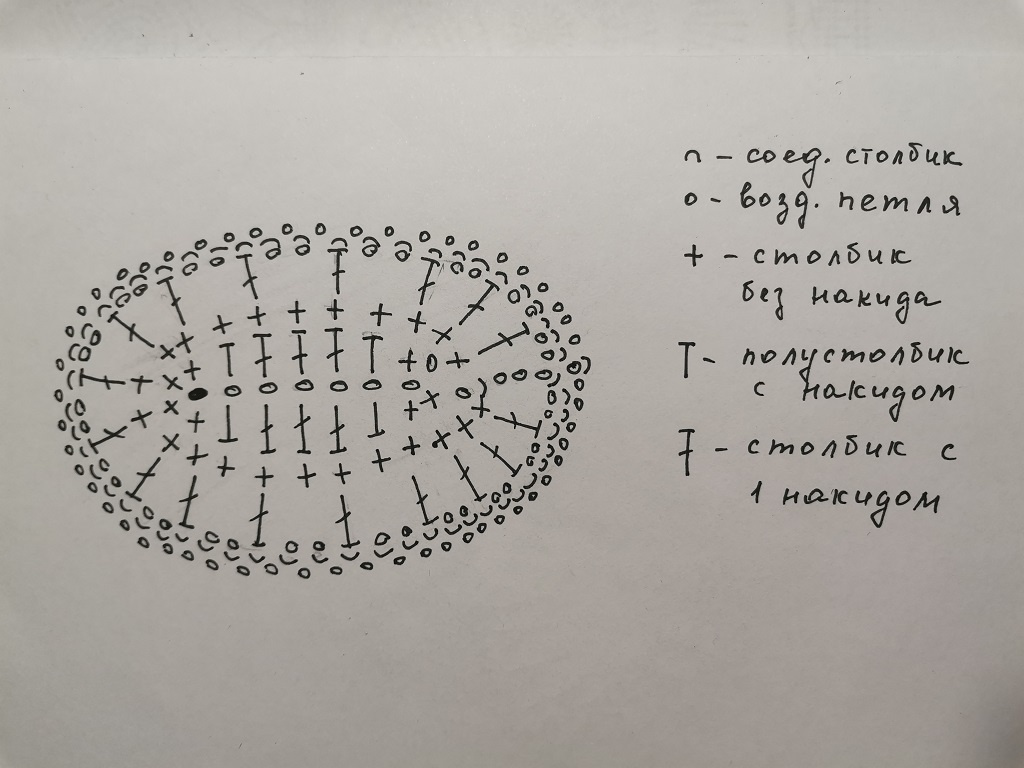 ∩ - соед. столбик
о - возд. петля
+ - столбик
без накида
T - полустолбик
с накидом
Ŧ - столбик с
1 накидом